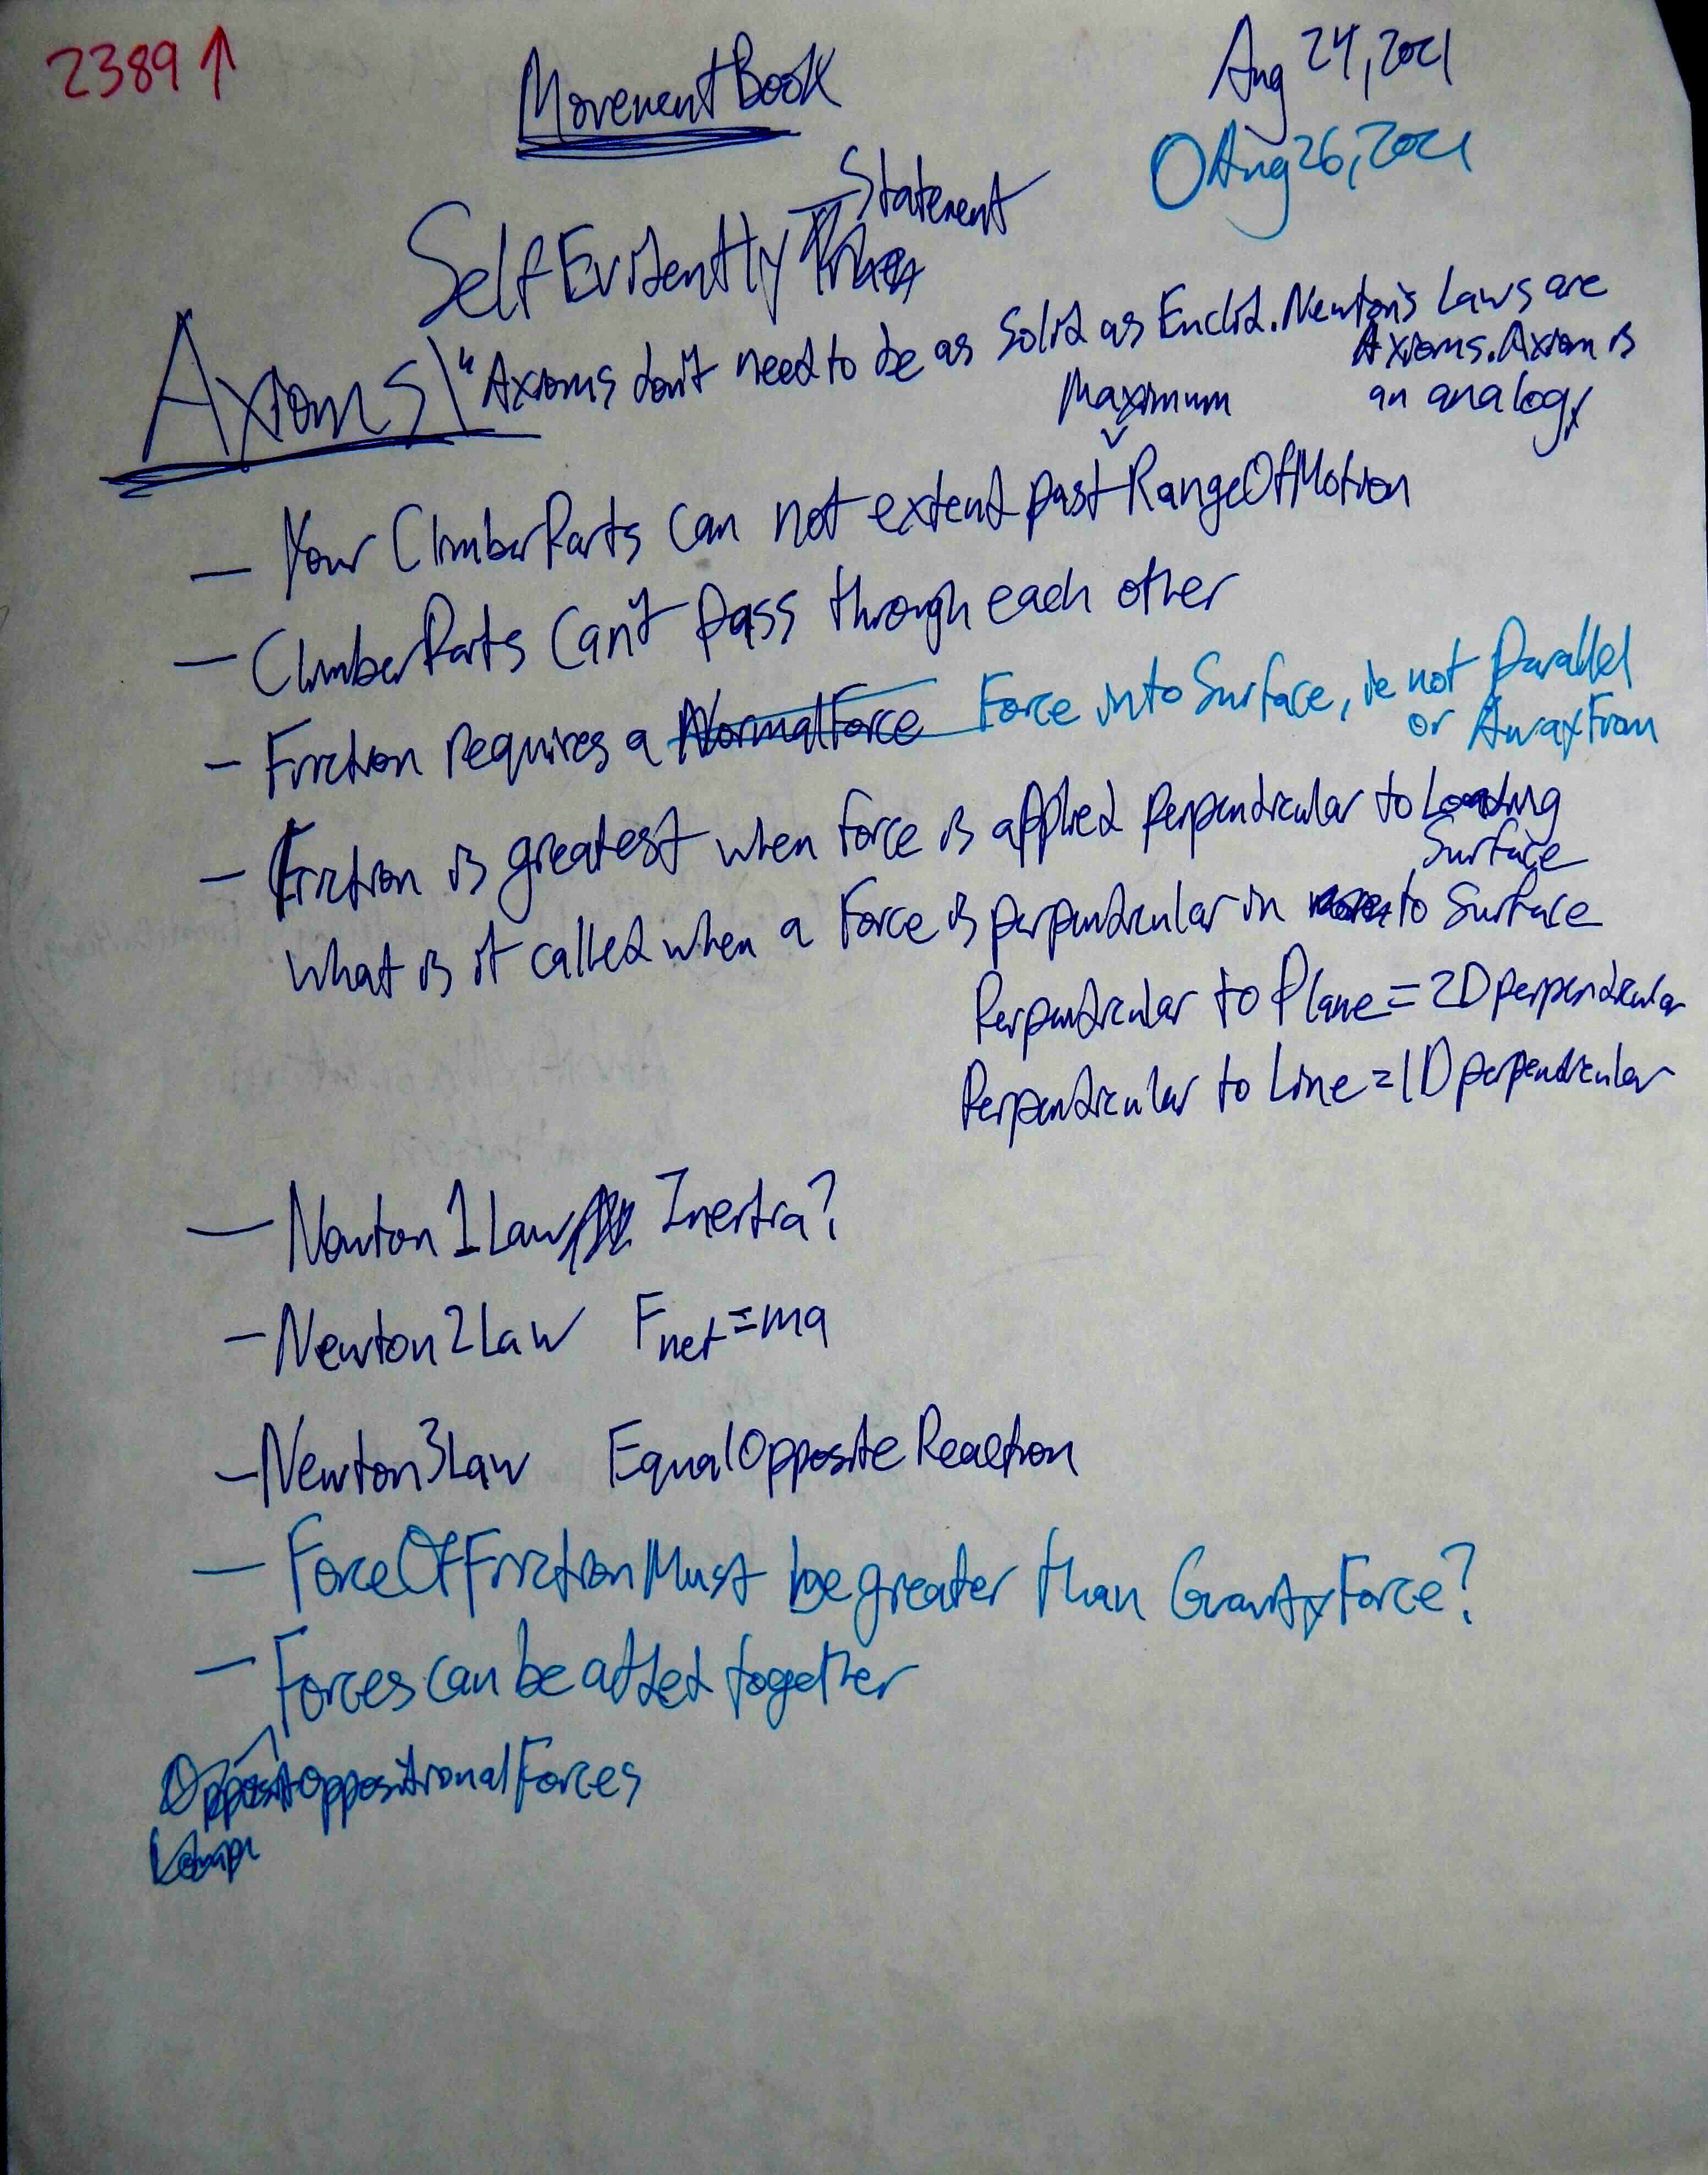 2389↑
MovementBook
Aug 24, 2021
Aug 26, 2021
Statement
SelfEvidently
Axioms
"Axioms don't need to be as solid as Euclid. Newton's Laws are
Axioms. Axiom is
an analogy
Maximum
— Your ClimberParts can not extend past RangeOfMotion
— ClimberParts Can't Pass through each other
— Friction requires a NormalForce Force into Surface, ie not Parallel
or AwayFrom
— Friction is greatest when force is applied perpendicular to Loading
Surface
What is it called when a Force is perpendicular in to Surface
Perpendicular to Plane = 2D perpendicular
Perpendicular to Line = 1D perpendicular
— Newton1Law Inertia?
— Newton2Law Fnet = ma
— Newton3Law EqualOppositeReaction
— ForceOfFrictionMust be greater than GravityForce?
— Forces can be added together
OppositionalForces